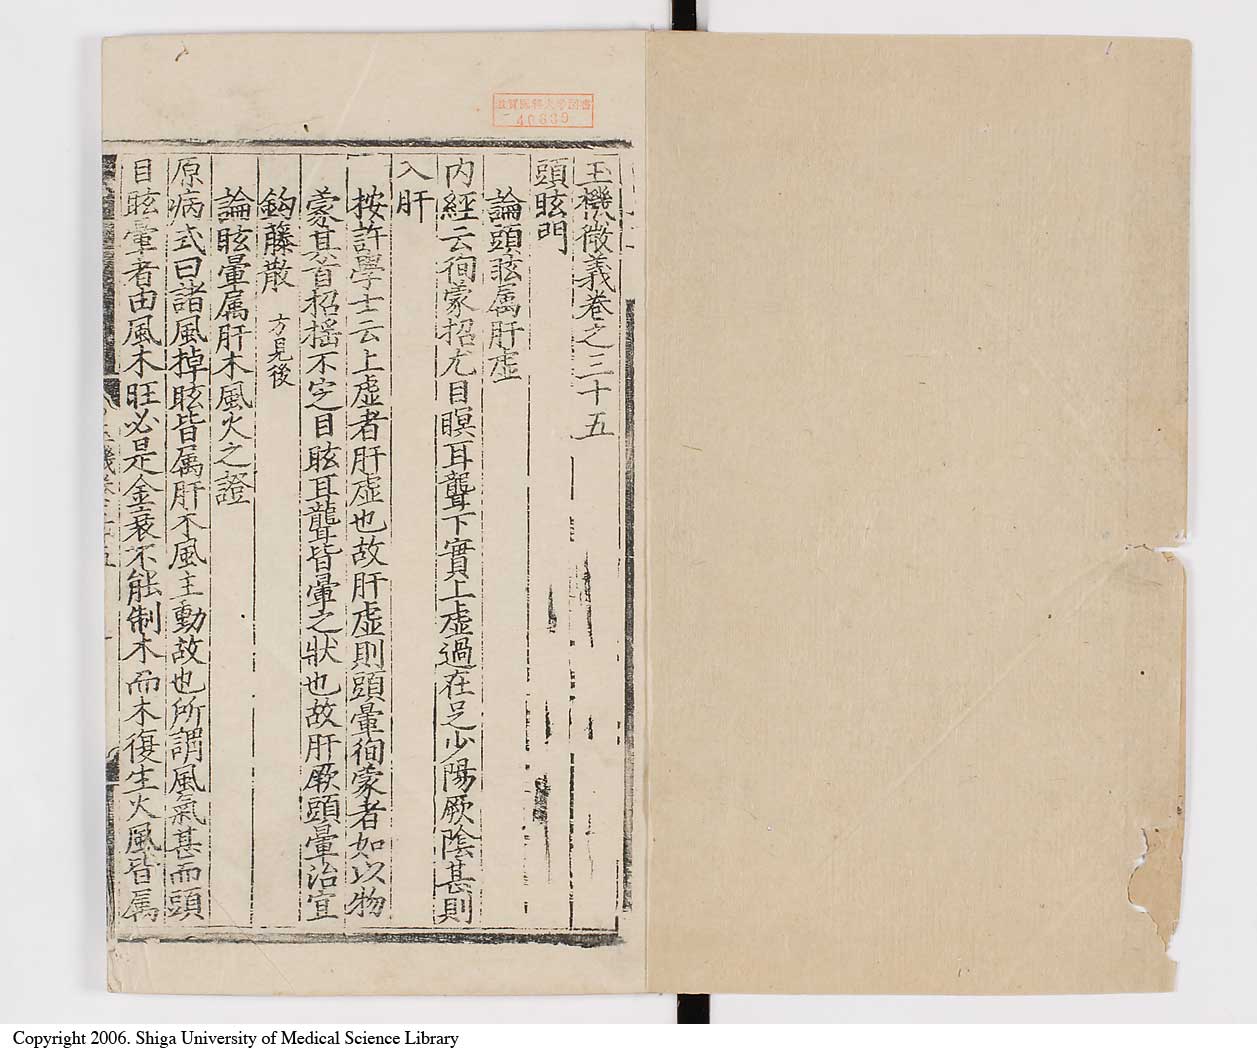 玉機微義卷之三十五
頭眩門
論頭眩属肝虚
内經云徇蒙招尤目瞑耳聾下實上虚過在足少陽厥陰甚則
入肝
按許學士云上虚者肝虚也故肝虚則頭暈徇蒙者如以物
蒙其首招揺不定目眩耳聾皆暈之狀也故肝厥頭暈治宜
鈎藤散 方見後
論眩暈属肝木風火之證
原病式曰諸風掉眩皆属肝木風主動故也所謂風氣甚而頭
目眩暈者由風木旺必是金衰不能制木而木復生火風皆属
滋賀医科大学図書
40639
Copyright 2006. Shiga University of Medical Science Library